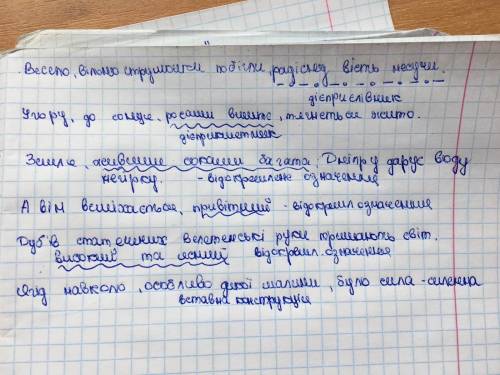 Весело, вільно струмочки побігли, радісну вість несучи.
дієприслівник
Угору, до сонця, росами вмите, тягнеться жито.
дієприкметник
Земля, живими соками багата, Дніпру дарує воду
нейірку. - відокремлене означення
А він всміхається, привітний - відокремл означення
Дубів статечних велетенські руки тримають світ.
високий та ясний відокремл. означення
Ягід навколо, особливо дикої малини, було сила-силенна
вставна конструкція